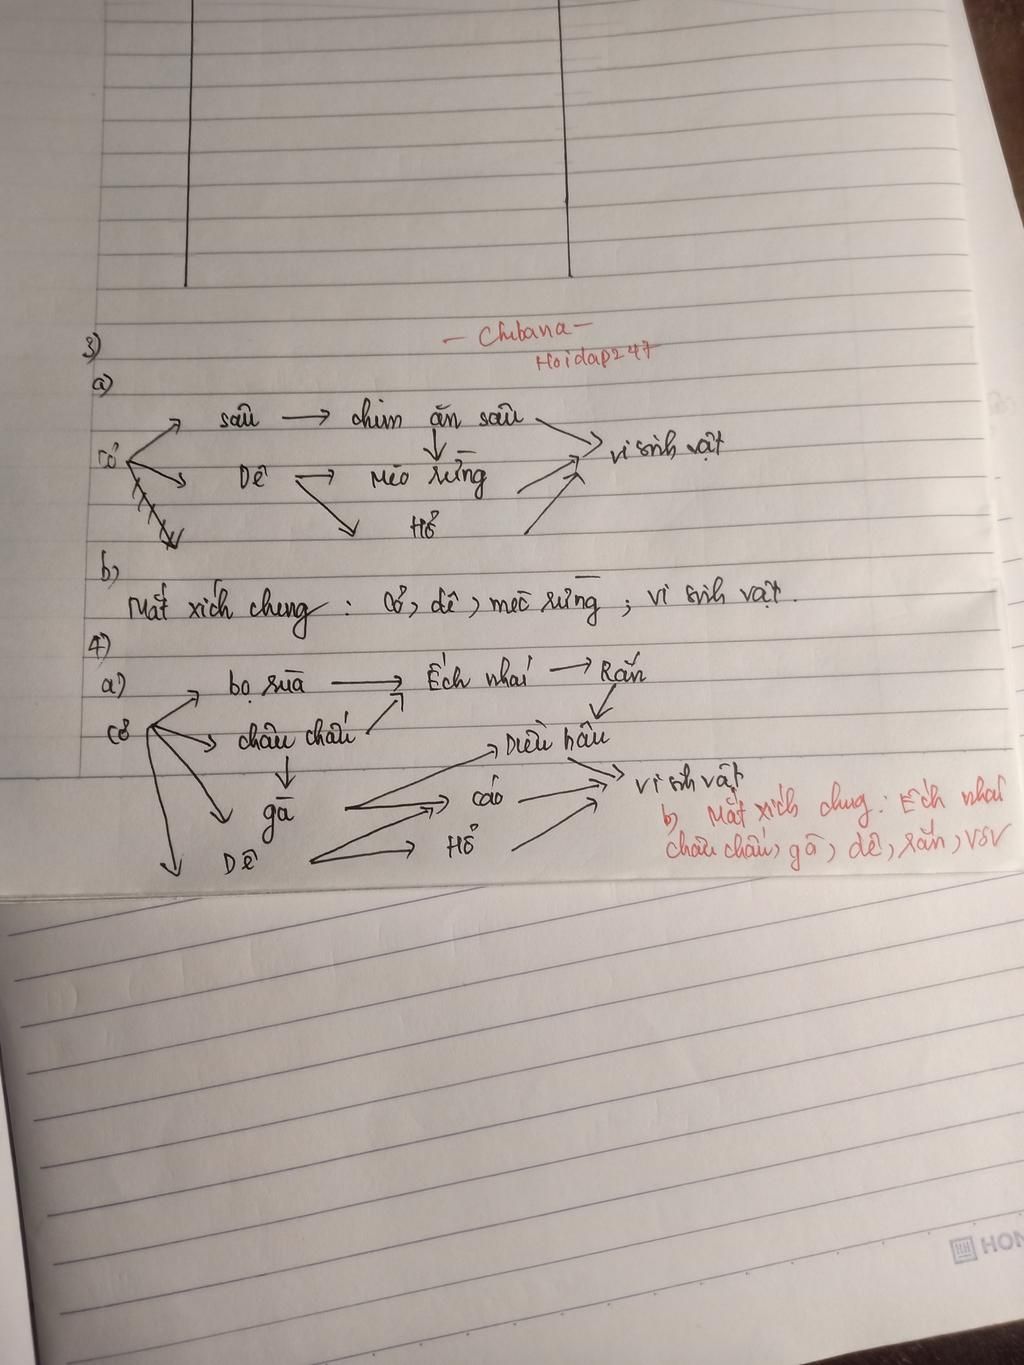 3)
- Chibana -
Hoidap247
a)
sâu → chim ăn sâu
cỏ
vi sinh vật
Dê → Mèo rừng
Hổ
b)
Mắt xích chung : cỏ, dê, mèo rừng, vi sinh vật.
4)
a) bọ rùa → Ếch nhái → Rắn
cỏ châu chấu Diều hâu
gà cáo vi sinh vật
Dê Hổ
b, Mắt xích chung: Ếch nhái
châu chấu, gà, dê, rắn, VSV
HON